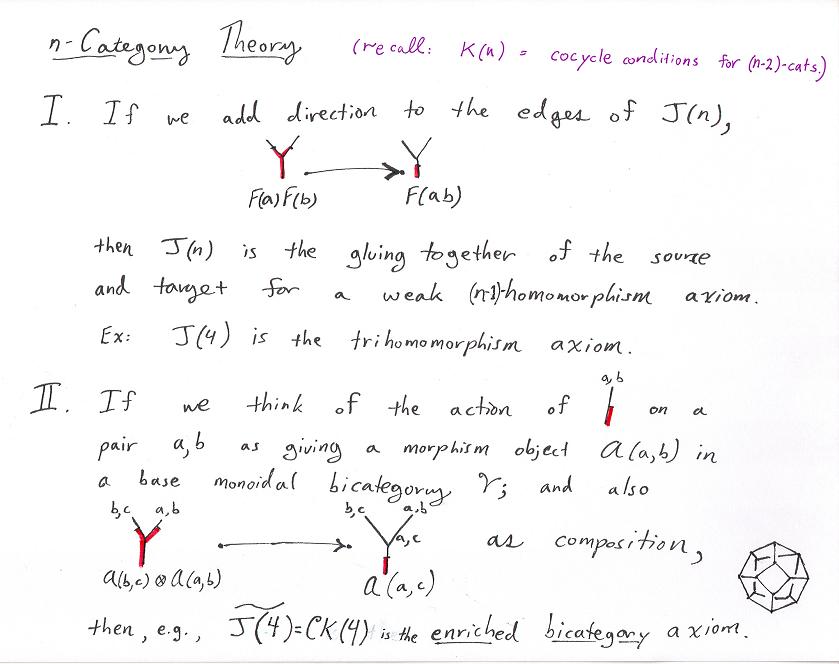 n-Category Theory (recall: K(n) = cocycle conditions for (n-2)-cats.)
I. If we add direction to the edges of J(n),
F(a)F(b) F(ab)
then J(n) is the gluing together of the source
and target for a weak (n-1)-homomorphism axiom.
Ex: J(4) is the trihomomorphism axiom.
a,b
II. If we think of the action of on a
pair a,b as giving a morphism object A(a,b) in
a base monoidal bicategory V; and also
b,c a,b b,c a,b
a,c as composition,
A(b,c)⊗A(a,b) A(a,c)
then, e.g., J(4)=CK(4) is the enriched bicategory axiom.